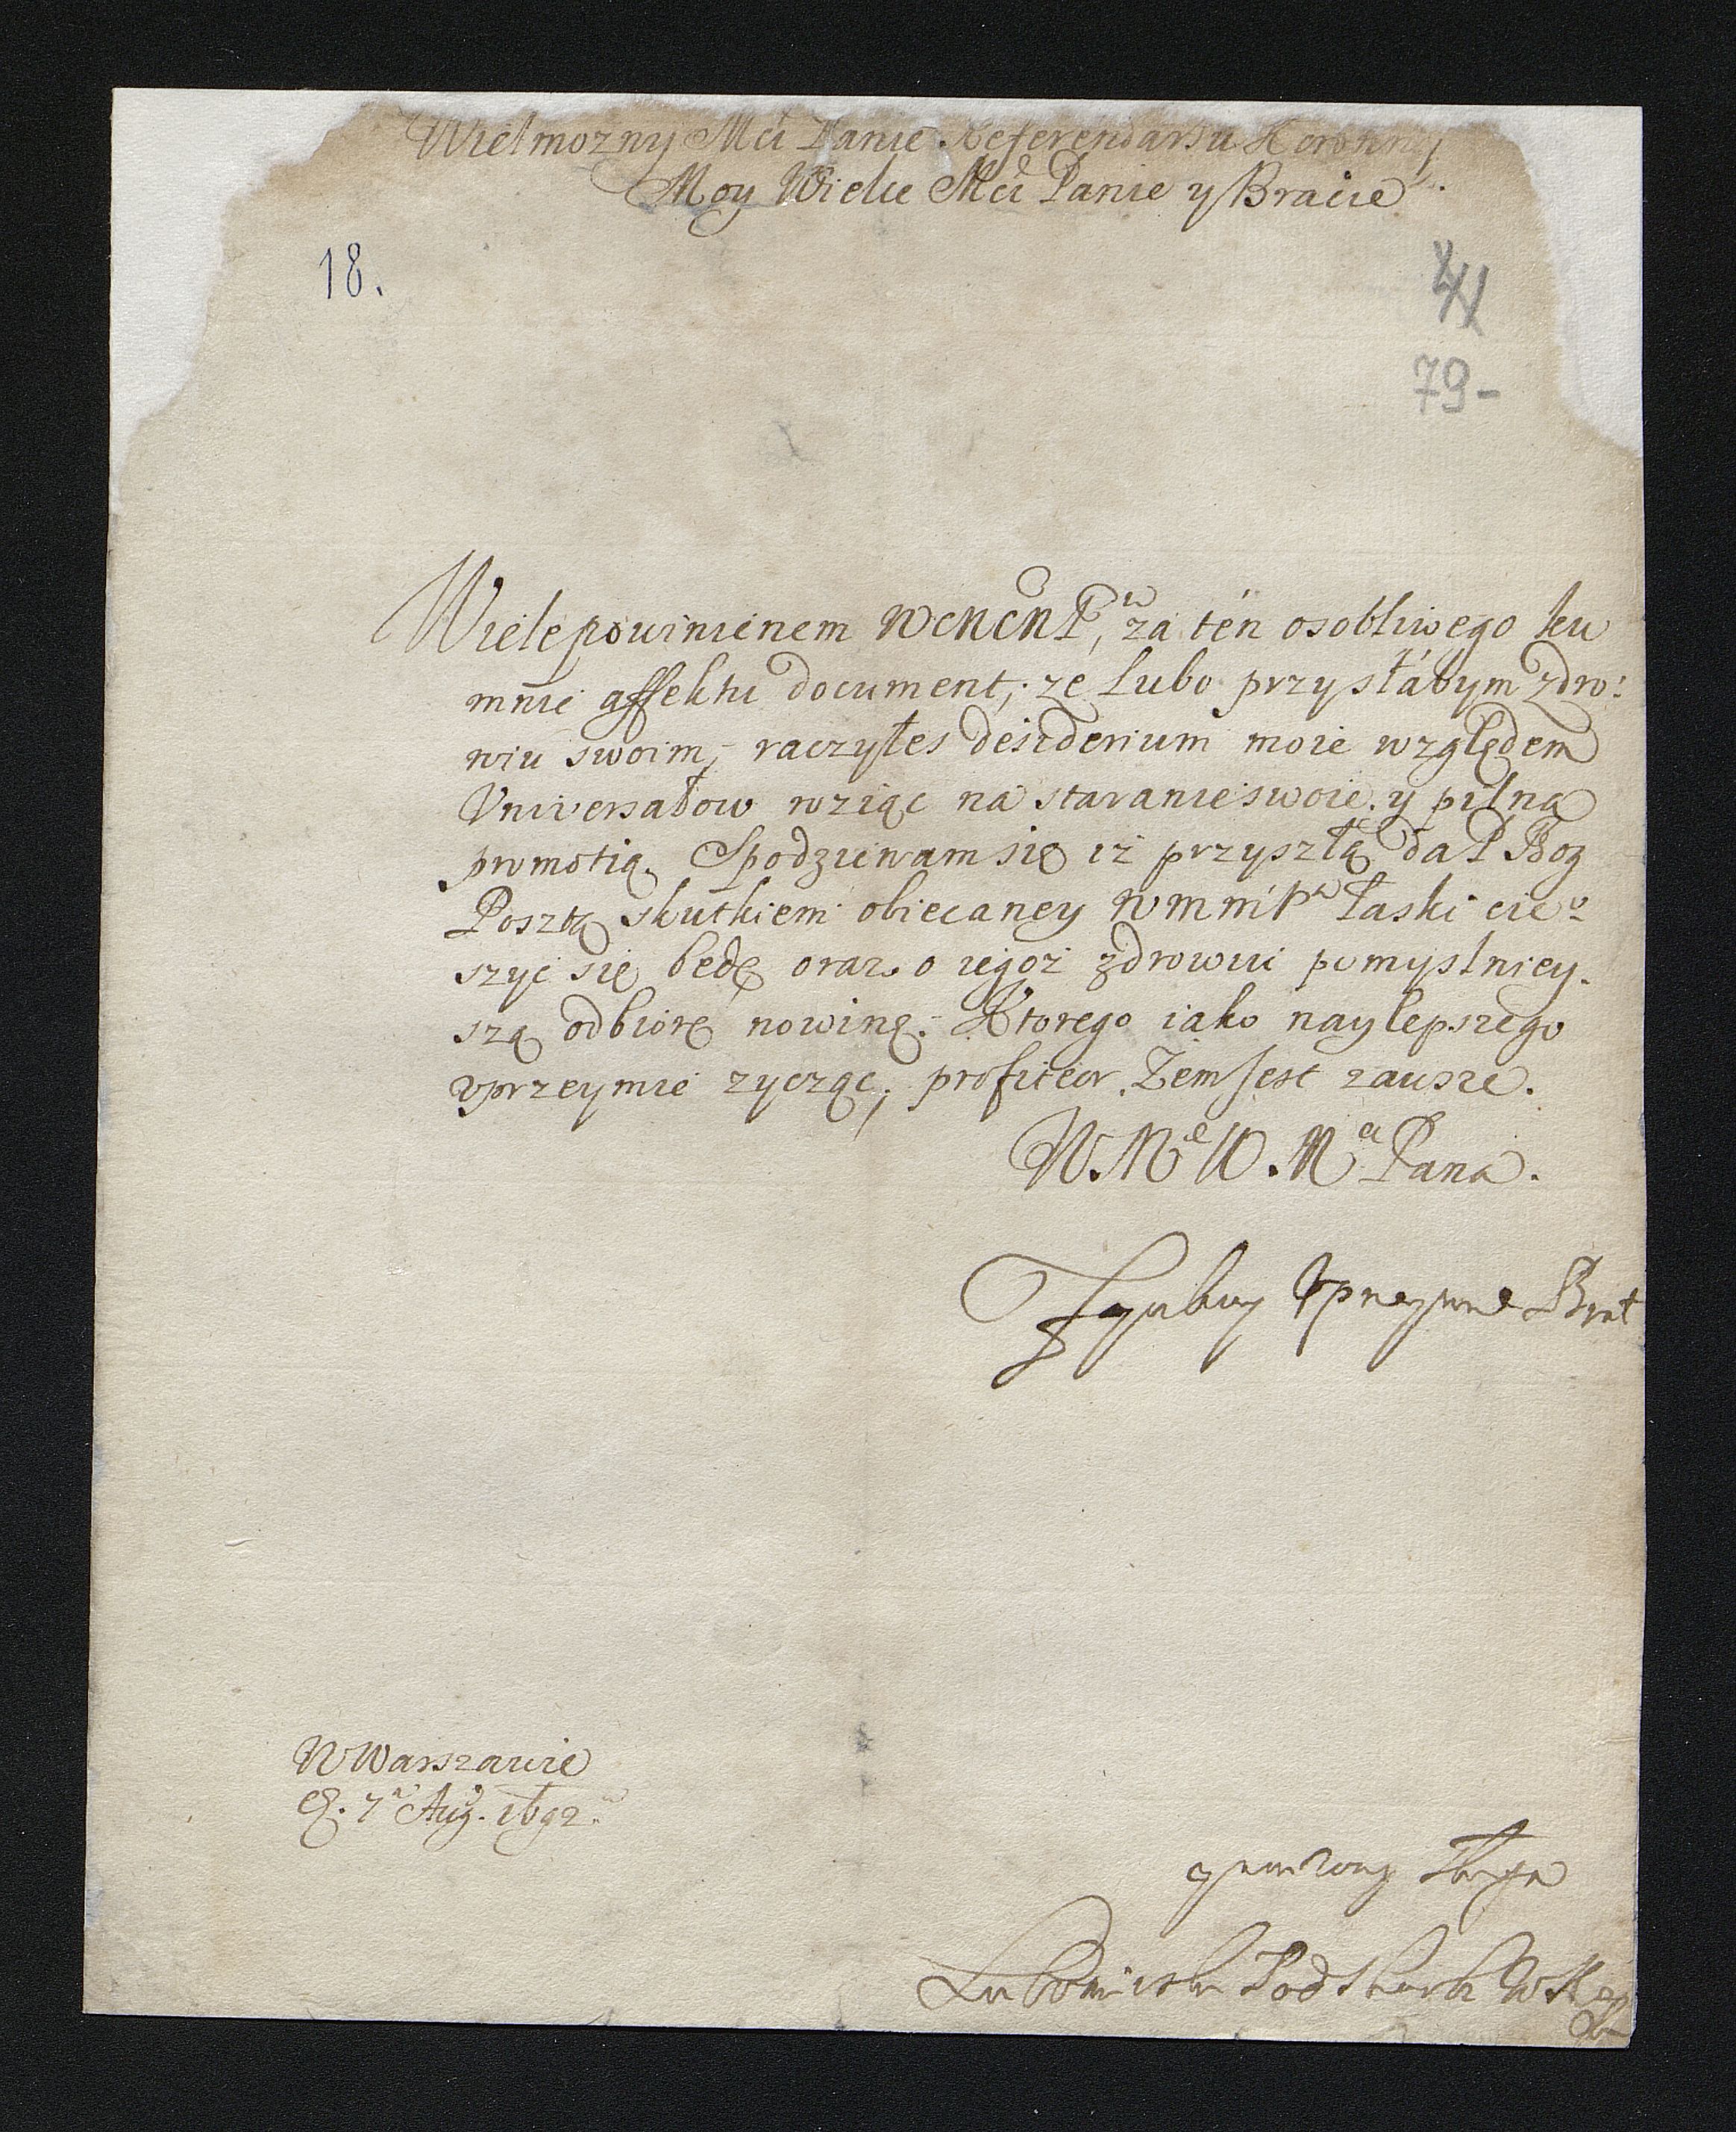 Wielmozny Mci Panie Referendarsu Koronny
Moy Wielce Mci Panie y Bracie
18.
79-
Wielepowinienem WCMCMP, za ten osobliwego ku
mnie affektu document, ze lubo przy słabym zdro:
wiu swoim, raczyłes desiderium moie względem
Vniversałow wziąc na staranie swoie, y pilną
promotią. Spodziewam się iz przyszłą da P Bog
Posztą skutkiem obiecaney WMMPa łaski cie:
szyc się bedę oraz o iegoz zdrowiu pomyslniey.
szą odbiorę nowinę. Ktorego iako naylepszego
vprzeymie zycząc, profiteor Zem jest zawsze.
W. Me W. Ma Pana.
Vprzeymie Brat
W Warszawie
7a Aug. 1692.
y sługa
Lubomirski Podskarbi WK